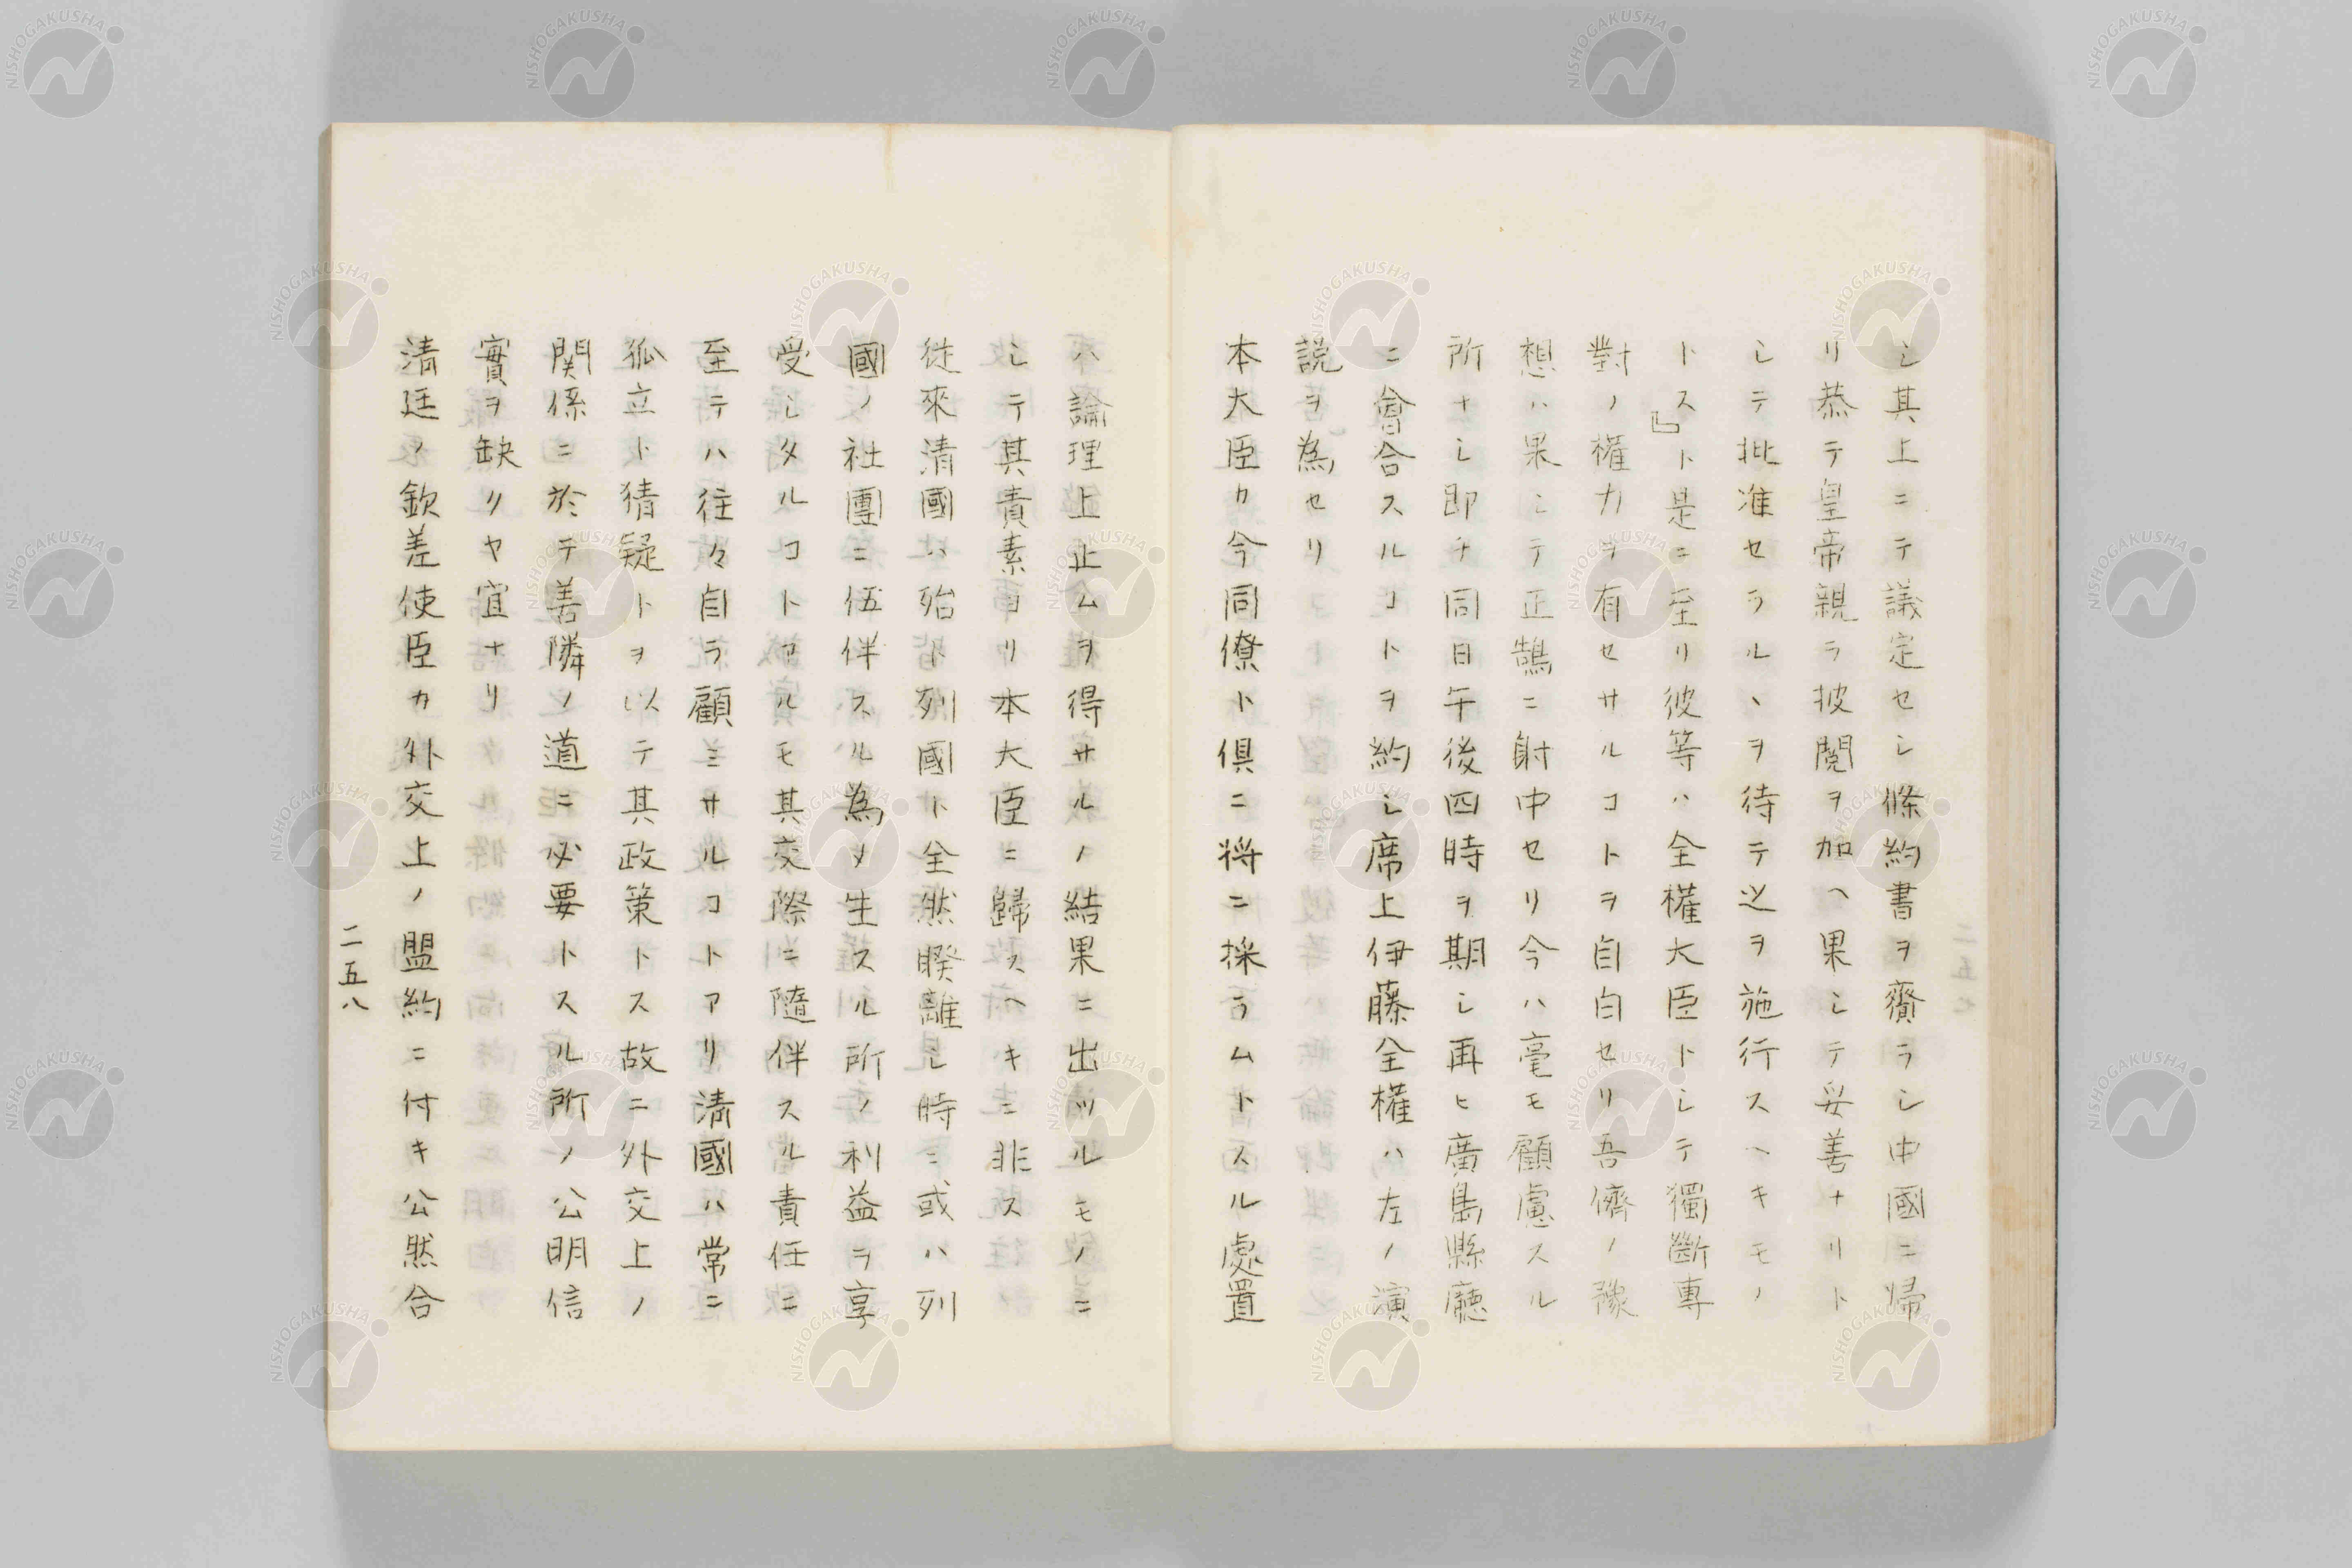 シ其上ニテ議定セシ條約書ヲ齎ラシ中國ニ歸
リ恭テ皇帝親ラ披閲ヲ加ヘ果シテ妥善ナリト
シテ批准セラルヽヲ待テ㐧ヲ施行スヘキモノ
トス』ト是ニ至リ彼等ハ全權大臣トシテ獨斷專
對ノ權力ヲ有セサルコトヲ自白セリ吾儕ノ豫
想ハ果シテ正鵠ニ射中セリ今ハ毫モ顧慮スル
所ナシ即チ同日午後四時ヲ期シ再ヒ廣島縣廳
ニ會合スルコトヲ約シ席上伊藤全權ハ左ノ演
説ヲ為セリ
本大臣カ今同僚ト俱ニ將ニ採ラムトスル處置
ハ論理上止ムヲ得サルノ結果ニ出ツルモノニ
シテ其責素ヨリ本大臣ニ歸スヘキニ非ス
從來清國ハ殆ト列國ト全然睽離シ時ニ或ハ列
國ノ社團ニ伍伴スル為メ生スル所ノ利益ヲ享
受シタルコトアルモ其交際ニ隨伴スル責任ニ
至テハ往々自ラ顧ミサルコトアリ清國ハ常ニ
孤立ト猜疑トヲ以テ其政策トス故ニ外交上ノ
関係ニ於テ善隣ノ道ニ必要トスル所ノ公明信
實ヲ缺リヤ宜ナリ
清廷ノ欽差使臣カ外交上ノ盟約ニ付キ公然合
二五八
NISHOGAKUSHA